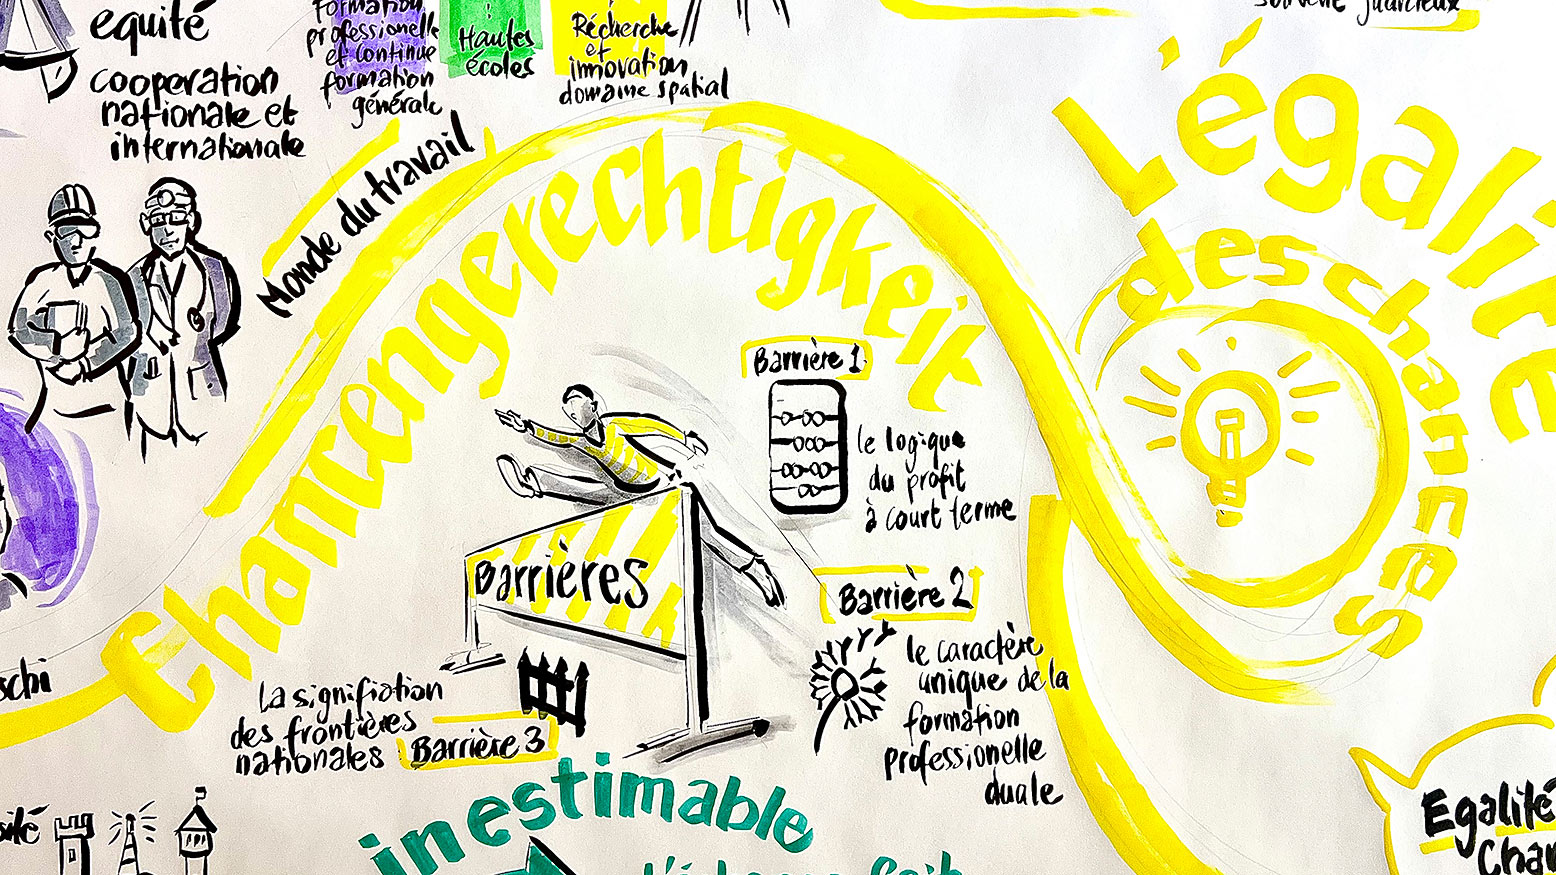 equité
cooperation
nationale et
internationale
formation
professionelle
et continue
formation
générale
Hautes
écoles
Récherche
et
innovation
domaine spatial
Monde du travail
Chancengerechtigkeit
L'égalité
des chances
Barrière 1
le logique
du profit
à court terme
Barrières
Barrière 2
le caractère
unique de la
formation
professionelle
duale
La signifiation
des frontières
nationales
Barrière 3
inestimable
Egalité